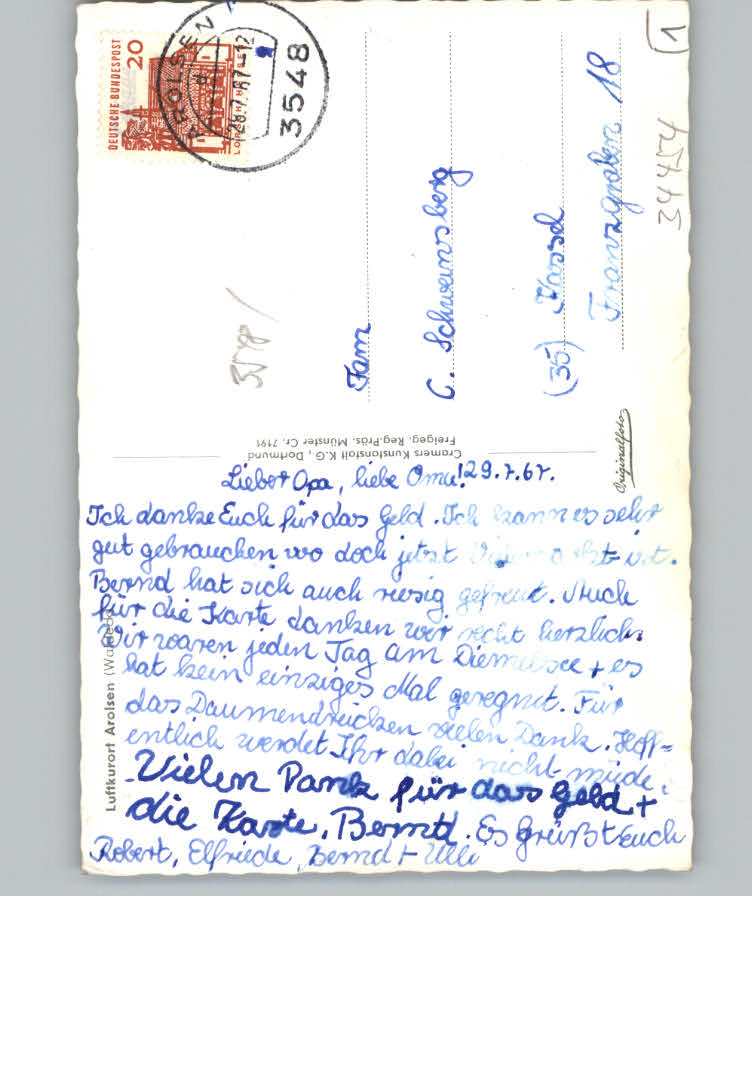 DEUTSCHE BUNDESPOST
20
AROLSEN
28.7.67-12
3548
1
34454
3548 /
Fam
C. Schweinsberg
(35) Kassel
Franzgraben 18
Cramers Kunstanstalt K.G., Dortmund
Freigeg. Reg.-Präs. Münster Cr. 7191
Originalfoto
Luftkurort Arolsen (Waldeck)
29.7.67.
Lieber Opa, liebe Oma!
Ich danke Euch für das Geld. Ich kann es sehr
gut gebrauchen wo doch jetzt ist.
Bernd hat sich auch riesig gefreut. Auch
für die Karte danken wir recht herzlich.
Wir waren jeden Tag am Diemelsee + es
hat kein einziges Mal geregnet. Für
das Daumendrücken vielen Dank. Hoff=
entlich werdet Ihr dabei nicht müde!
Vielen Dank für das Geld +
die Karte, Bernd. Es grüßt Euch
Robert, Elfriede, Bernd + Ulli